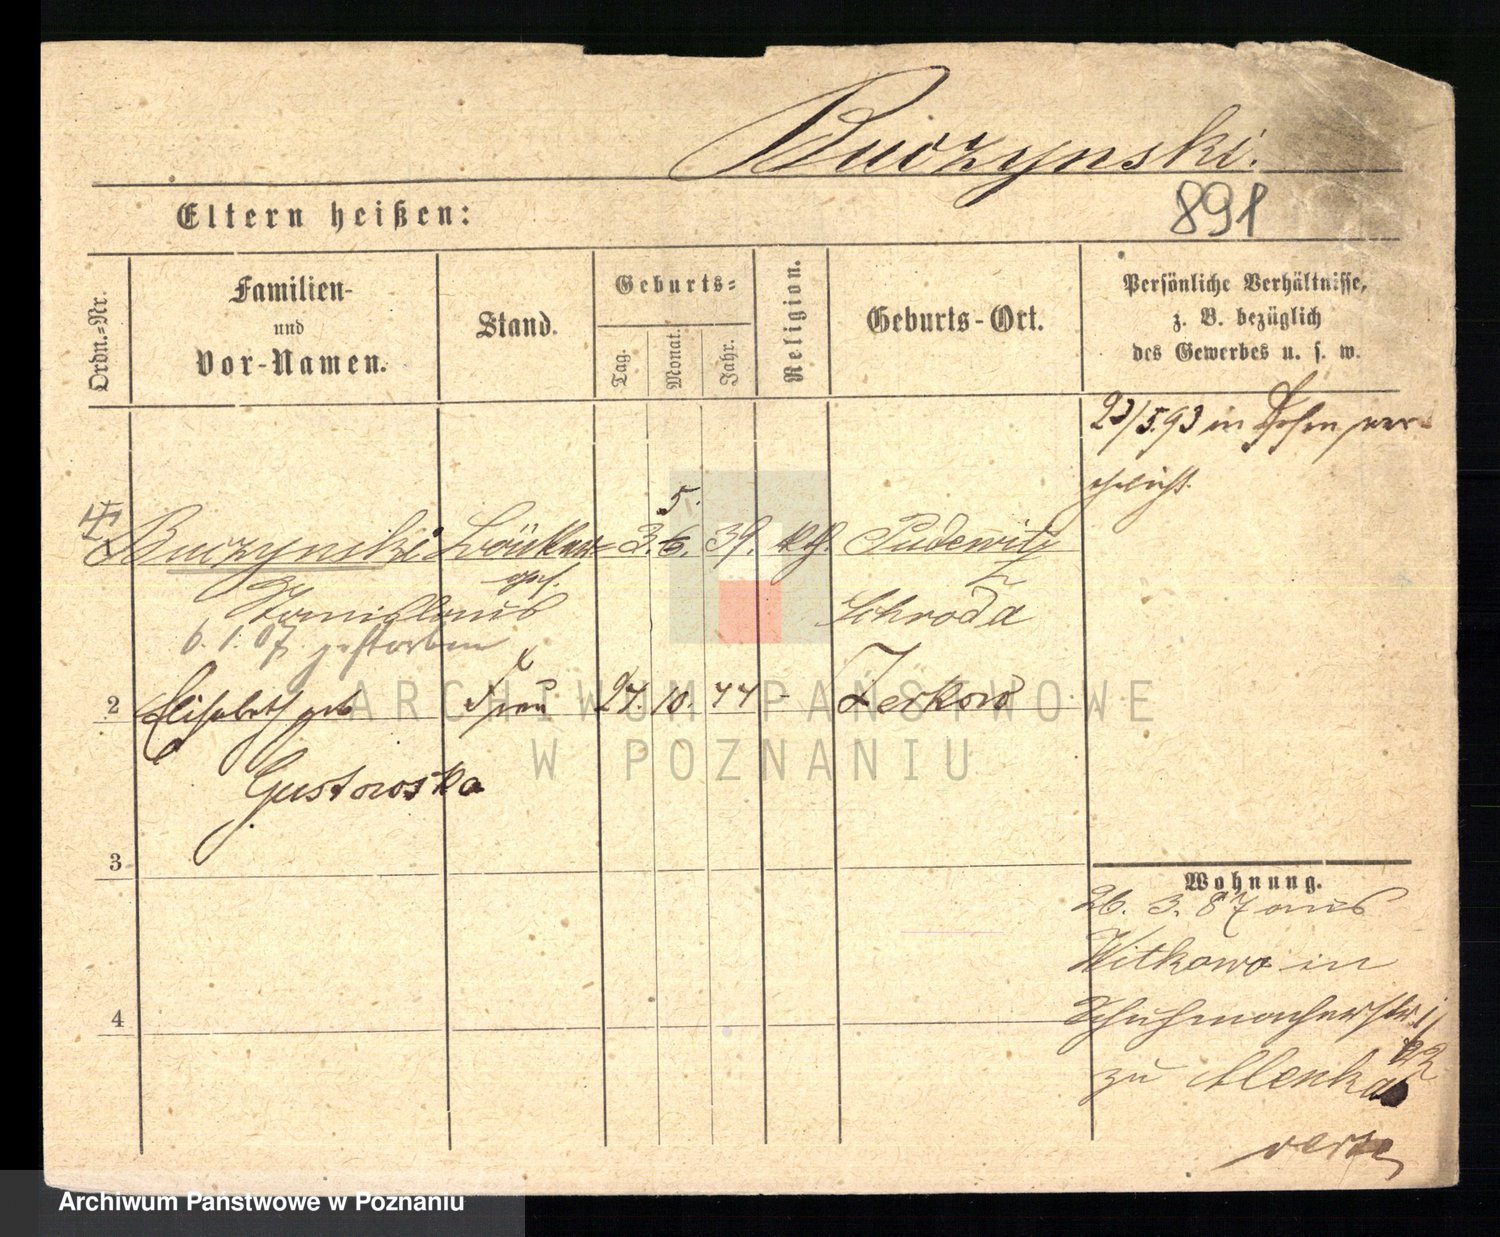 Buczynski.
891
Eltern heißen:
Ordn.-Nr.
Familien-
und
Vor-Namen.
Stand.
Geburts-
Tag.
Monat.
Jahr.
Religion.
Geburts-Ort.
Persönliche Verhältnisse,
z. B. bezüglich
des Gewerbes u. s. w.
23/5.93 in Posen ver
ehelicht.
5.
Buczynski 3. 6. 39. kth. Pudewitz
Schroda
6. 1. 07. gestorben
2 Elisabeth geb Frau 24. 10. 44 - Zerkow
Gustowska
3
Wohnung.
26. 3. 87 aus
Witkowo in
4
Schuhmacherstr. 11/
12
zu Menka
verte
ARCHIWUM PAŃSTWOWE
W POZNANIU
Archiwum Państwowe w Poznaniu